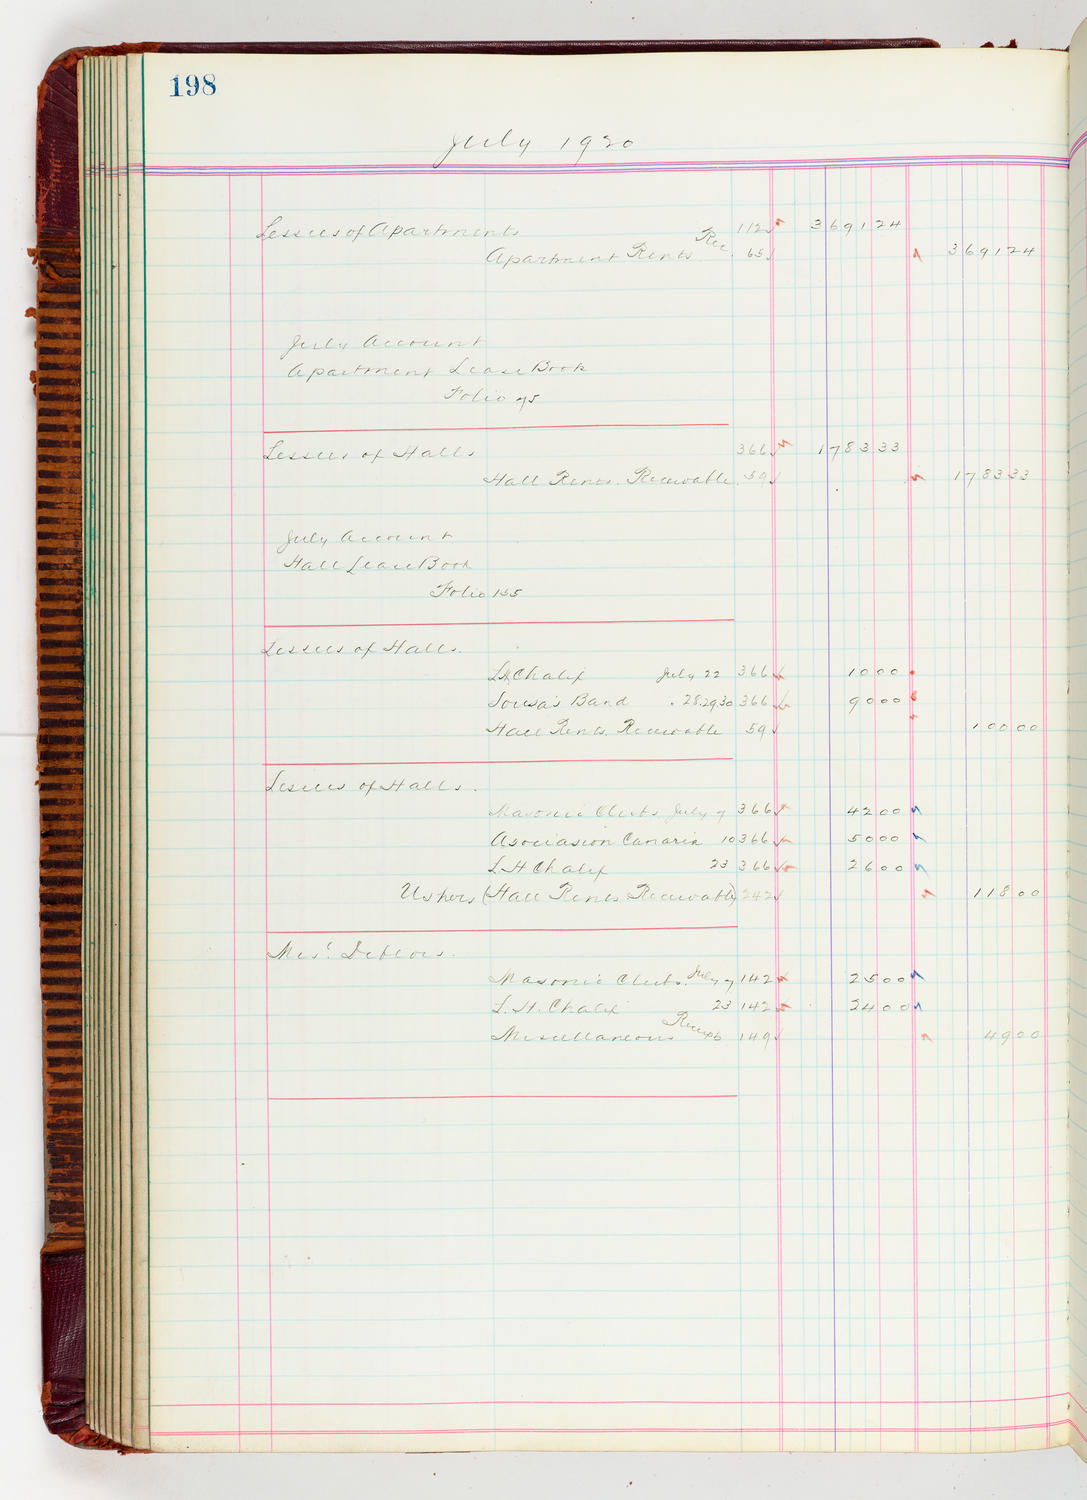 198
July 1920
Lessees of Apartments 112 3691 24
Apartment Rents Rec. 65 3691 24
July Account
Apartment Lease Book
Folio 75
Lessees of Halls 366 1783 33
Hall Rents Receivable 59 1783 33
July Account
Hall Lease Book
Folio 155
Lessees of Halls.
L H Chalif July 22 366 10 00
Sousa's Band " 28.29.30 366 90 00
Hall Rents Receivable 59 100 00
Lessees of Halls.
Masonic Clubs July 7 366 42 00
Asociasion Canaria 10 366 50 00
L H Chalif 23 366 26 00
Ushers (Hall Rents Receivable) 242 118 00
Mis. Debtors.
Masonic Clubs. July 7 142 25 00
L. H. Chalif 23 142 24 00
Miscellaneous Receipts 149 49 00